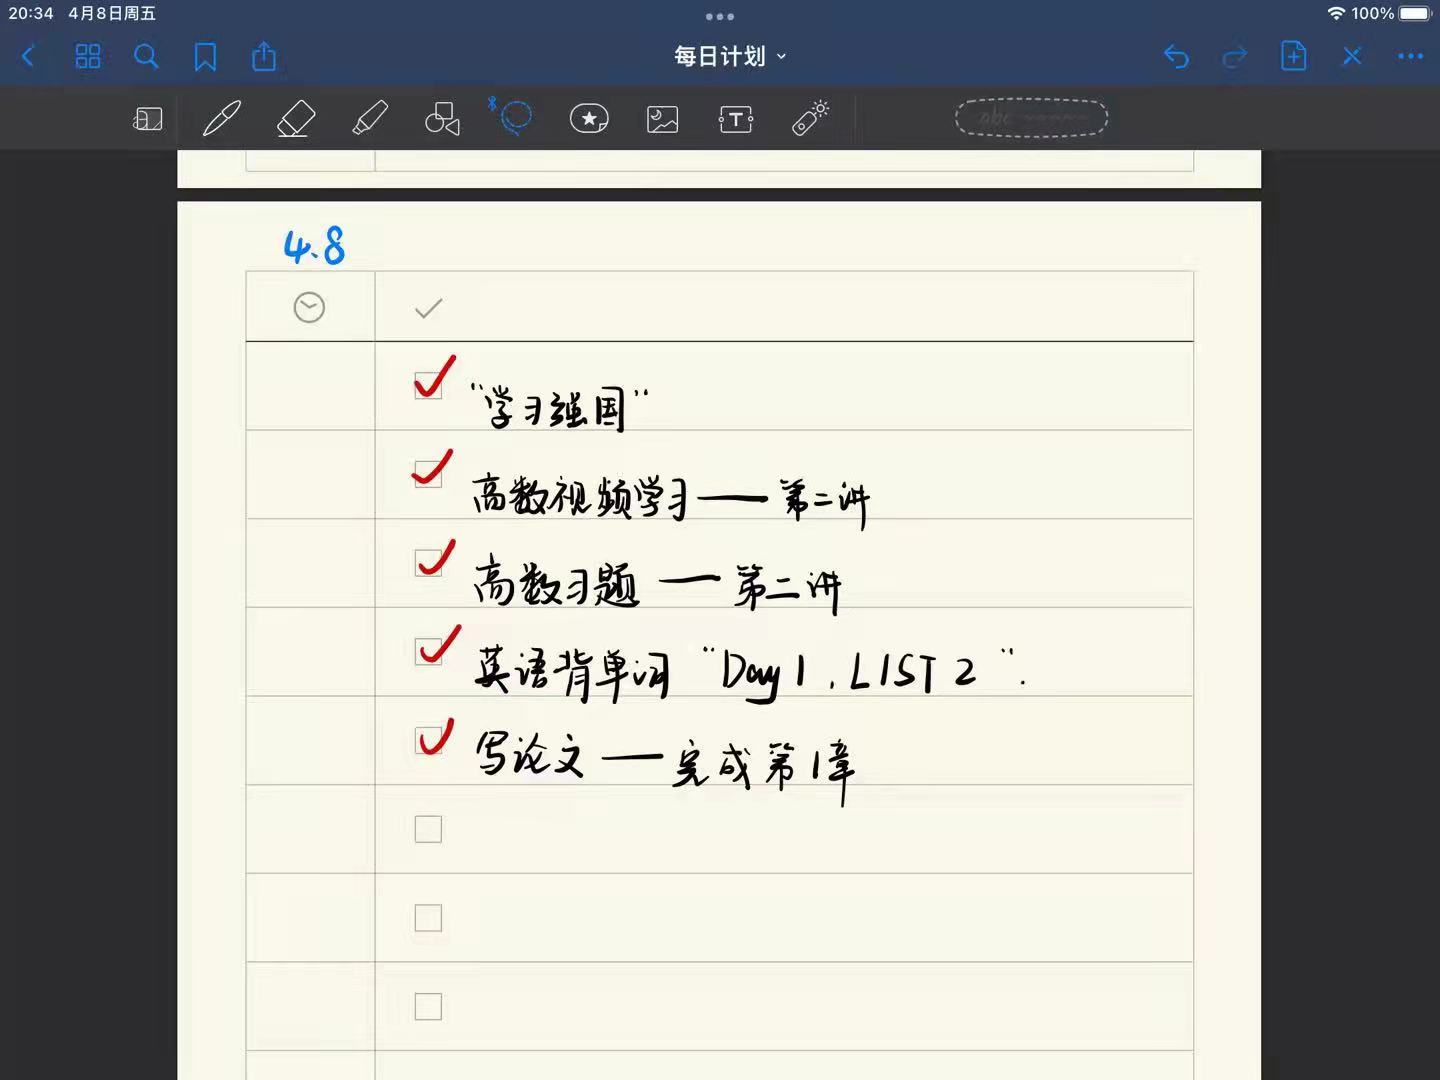 20:34 4月8日周五 100%
每日计划
abc
4.8
"学习强国"
高数视频学习——第二讲
高数习题——第二讲
英语背单词 "Day 1, LIST 2".
写论文——完成第1章